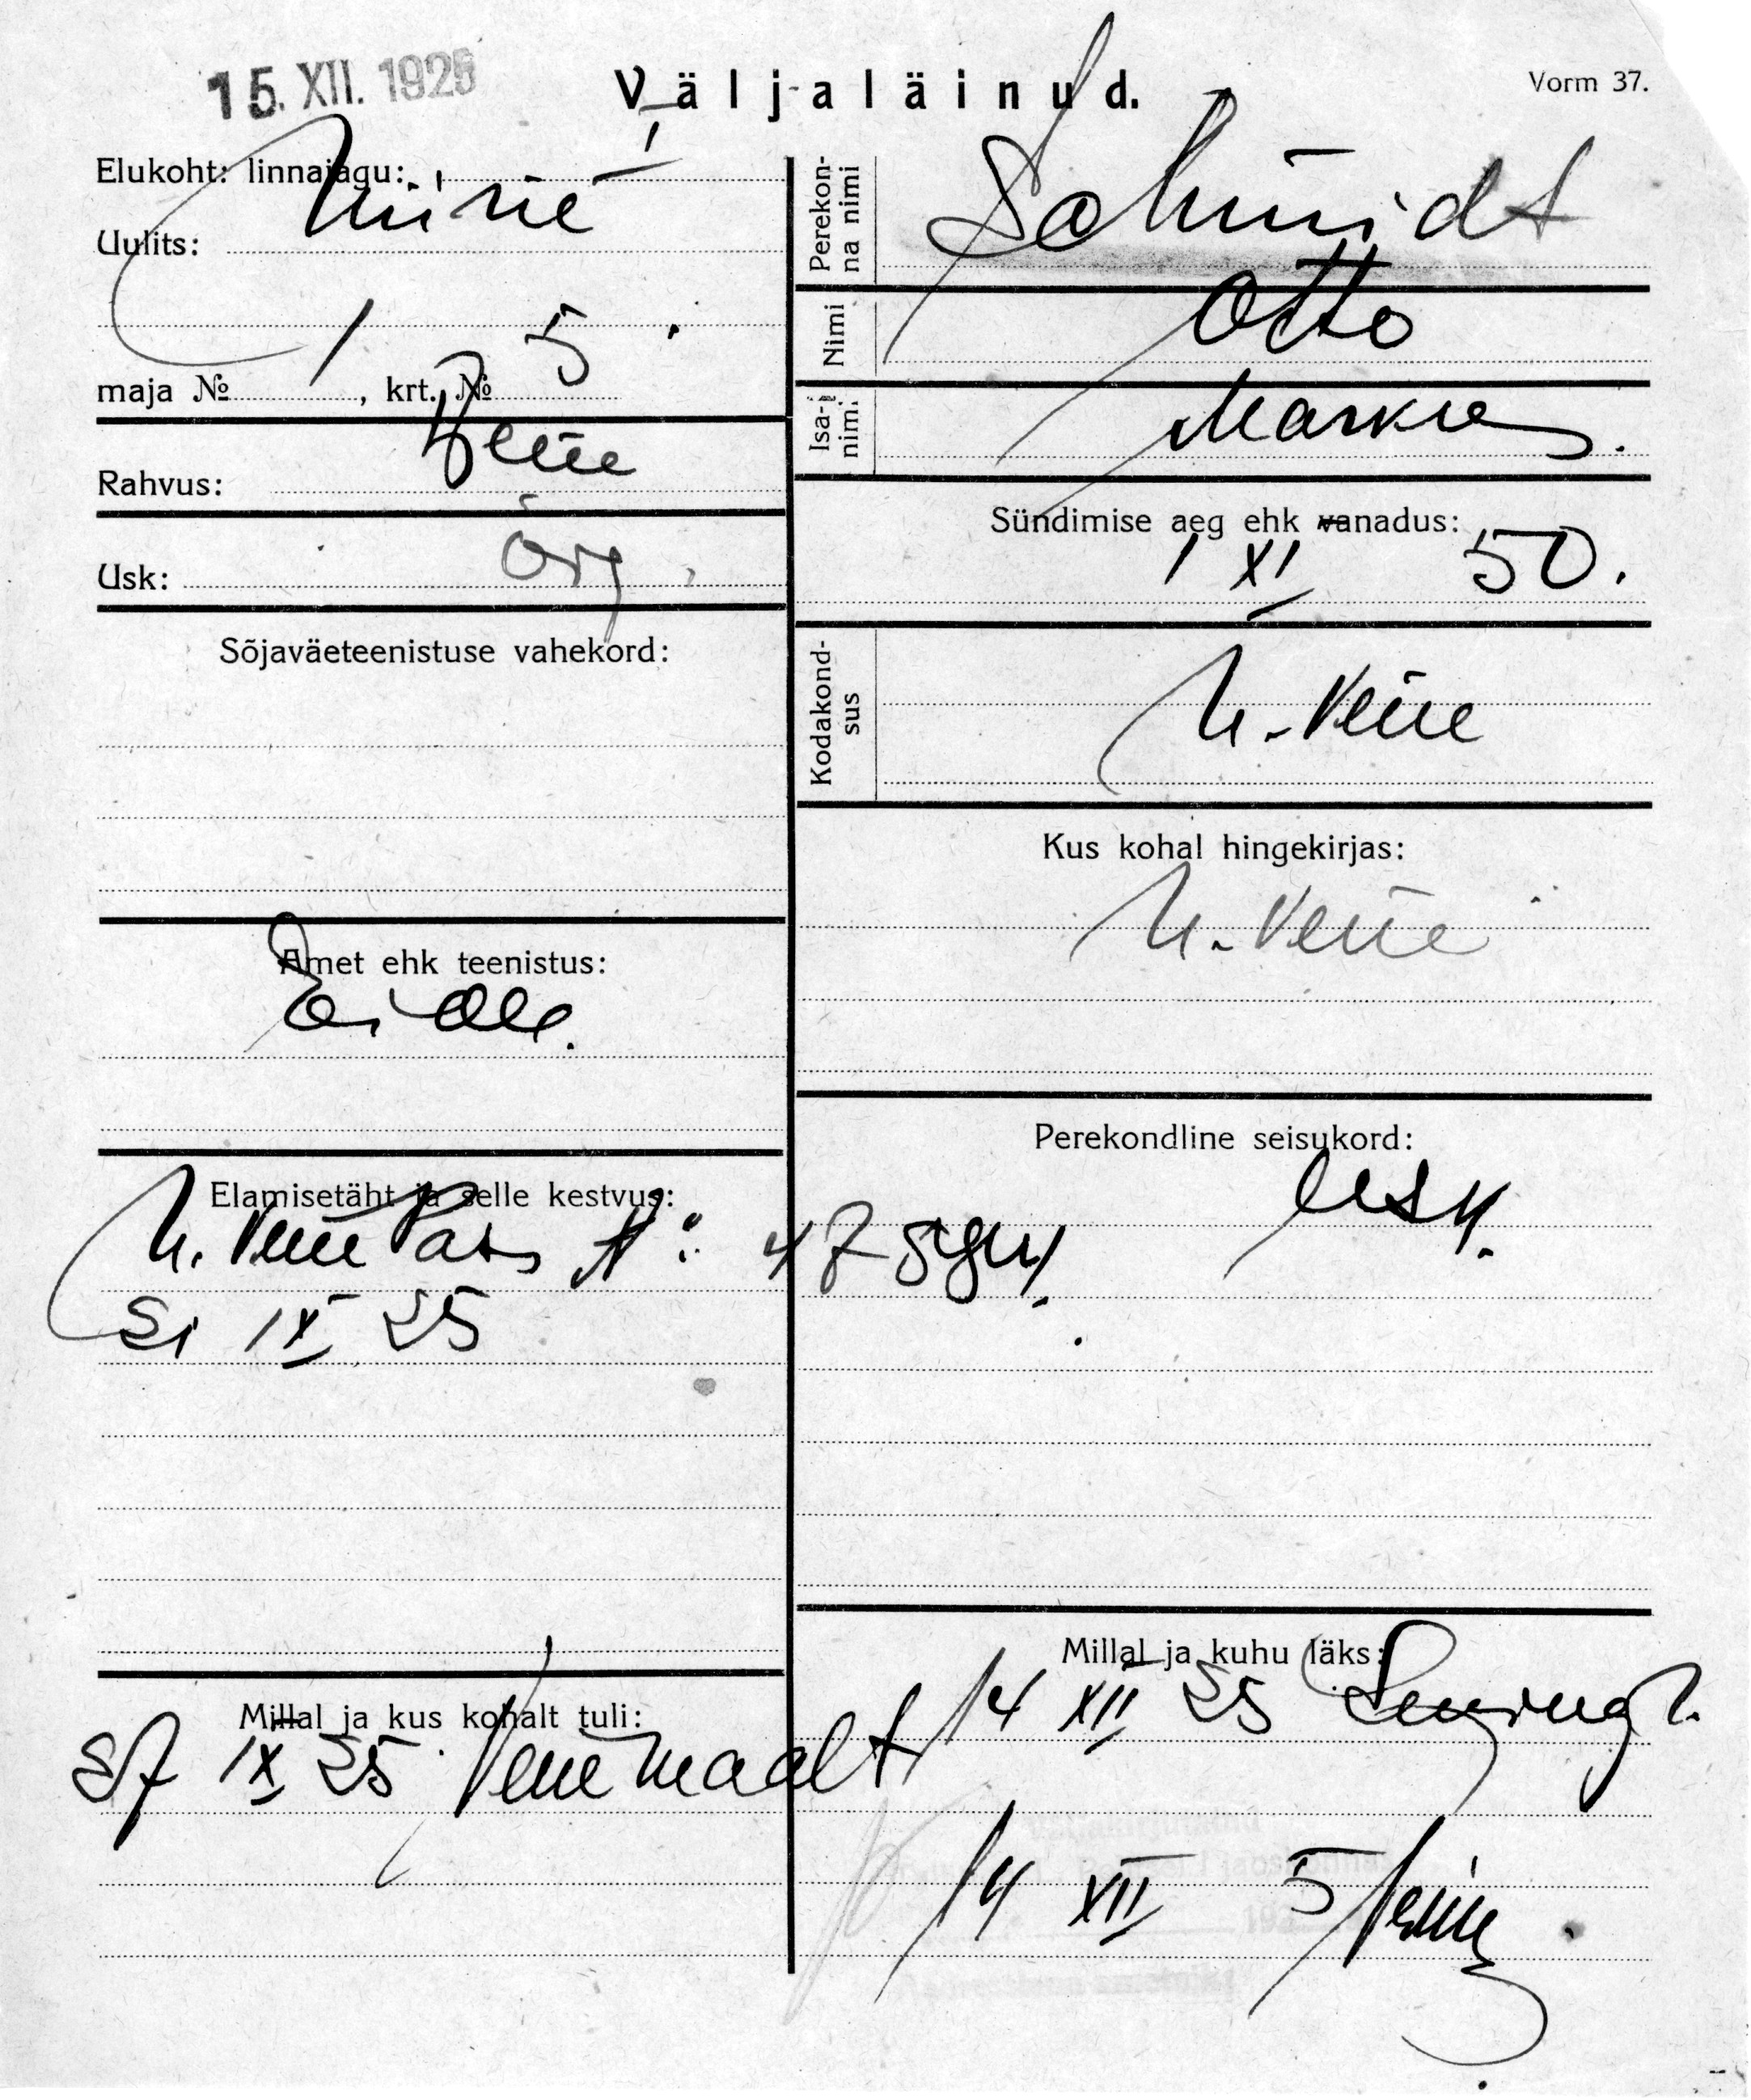 15. XII. 1925
Väljaläinud.
Vorm 37.
Elukoht: linnajagu: I
Uulits: Niine
maja № 1, krt. № 5
Rahvus: Vene
Usk: õig.
Sõjaväeteenistuse vahekord:
Amet ehk teenistus:
Elamisetäht ja selle kestvus:
N. Vene Pass №
IX 25
Millal ja kus kohalt tuli:
27 IX 25 Venemaalt
Perekonna nimi Schmidt
Nimi Otto
Isanimi Markus.
Sündimise aeg ehk vanadus:
1 XI 50.
Kodakondsus N. Vene
Kus kohal hingekirjas:
N. Vene
Perekondline seisukord:
lesk.
Millal ja kuhu läks:
14 XII 25 Leningr.
14 XII 5